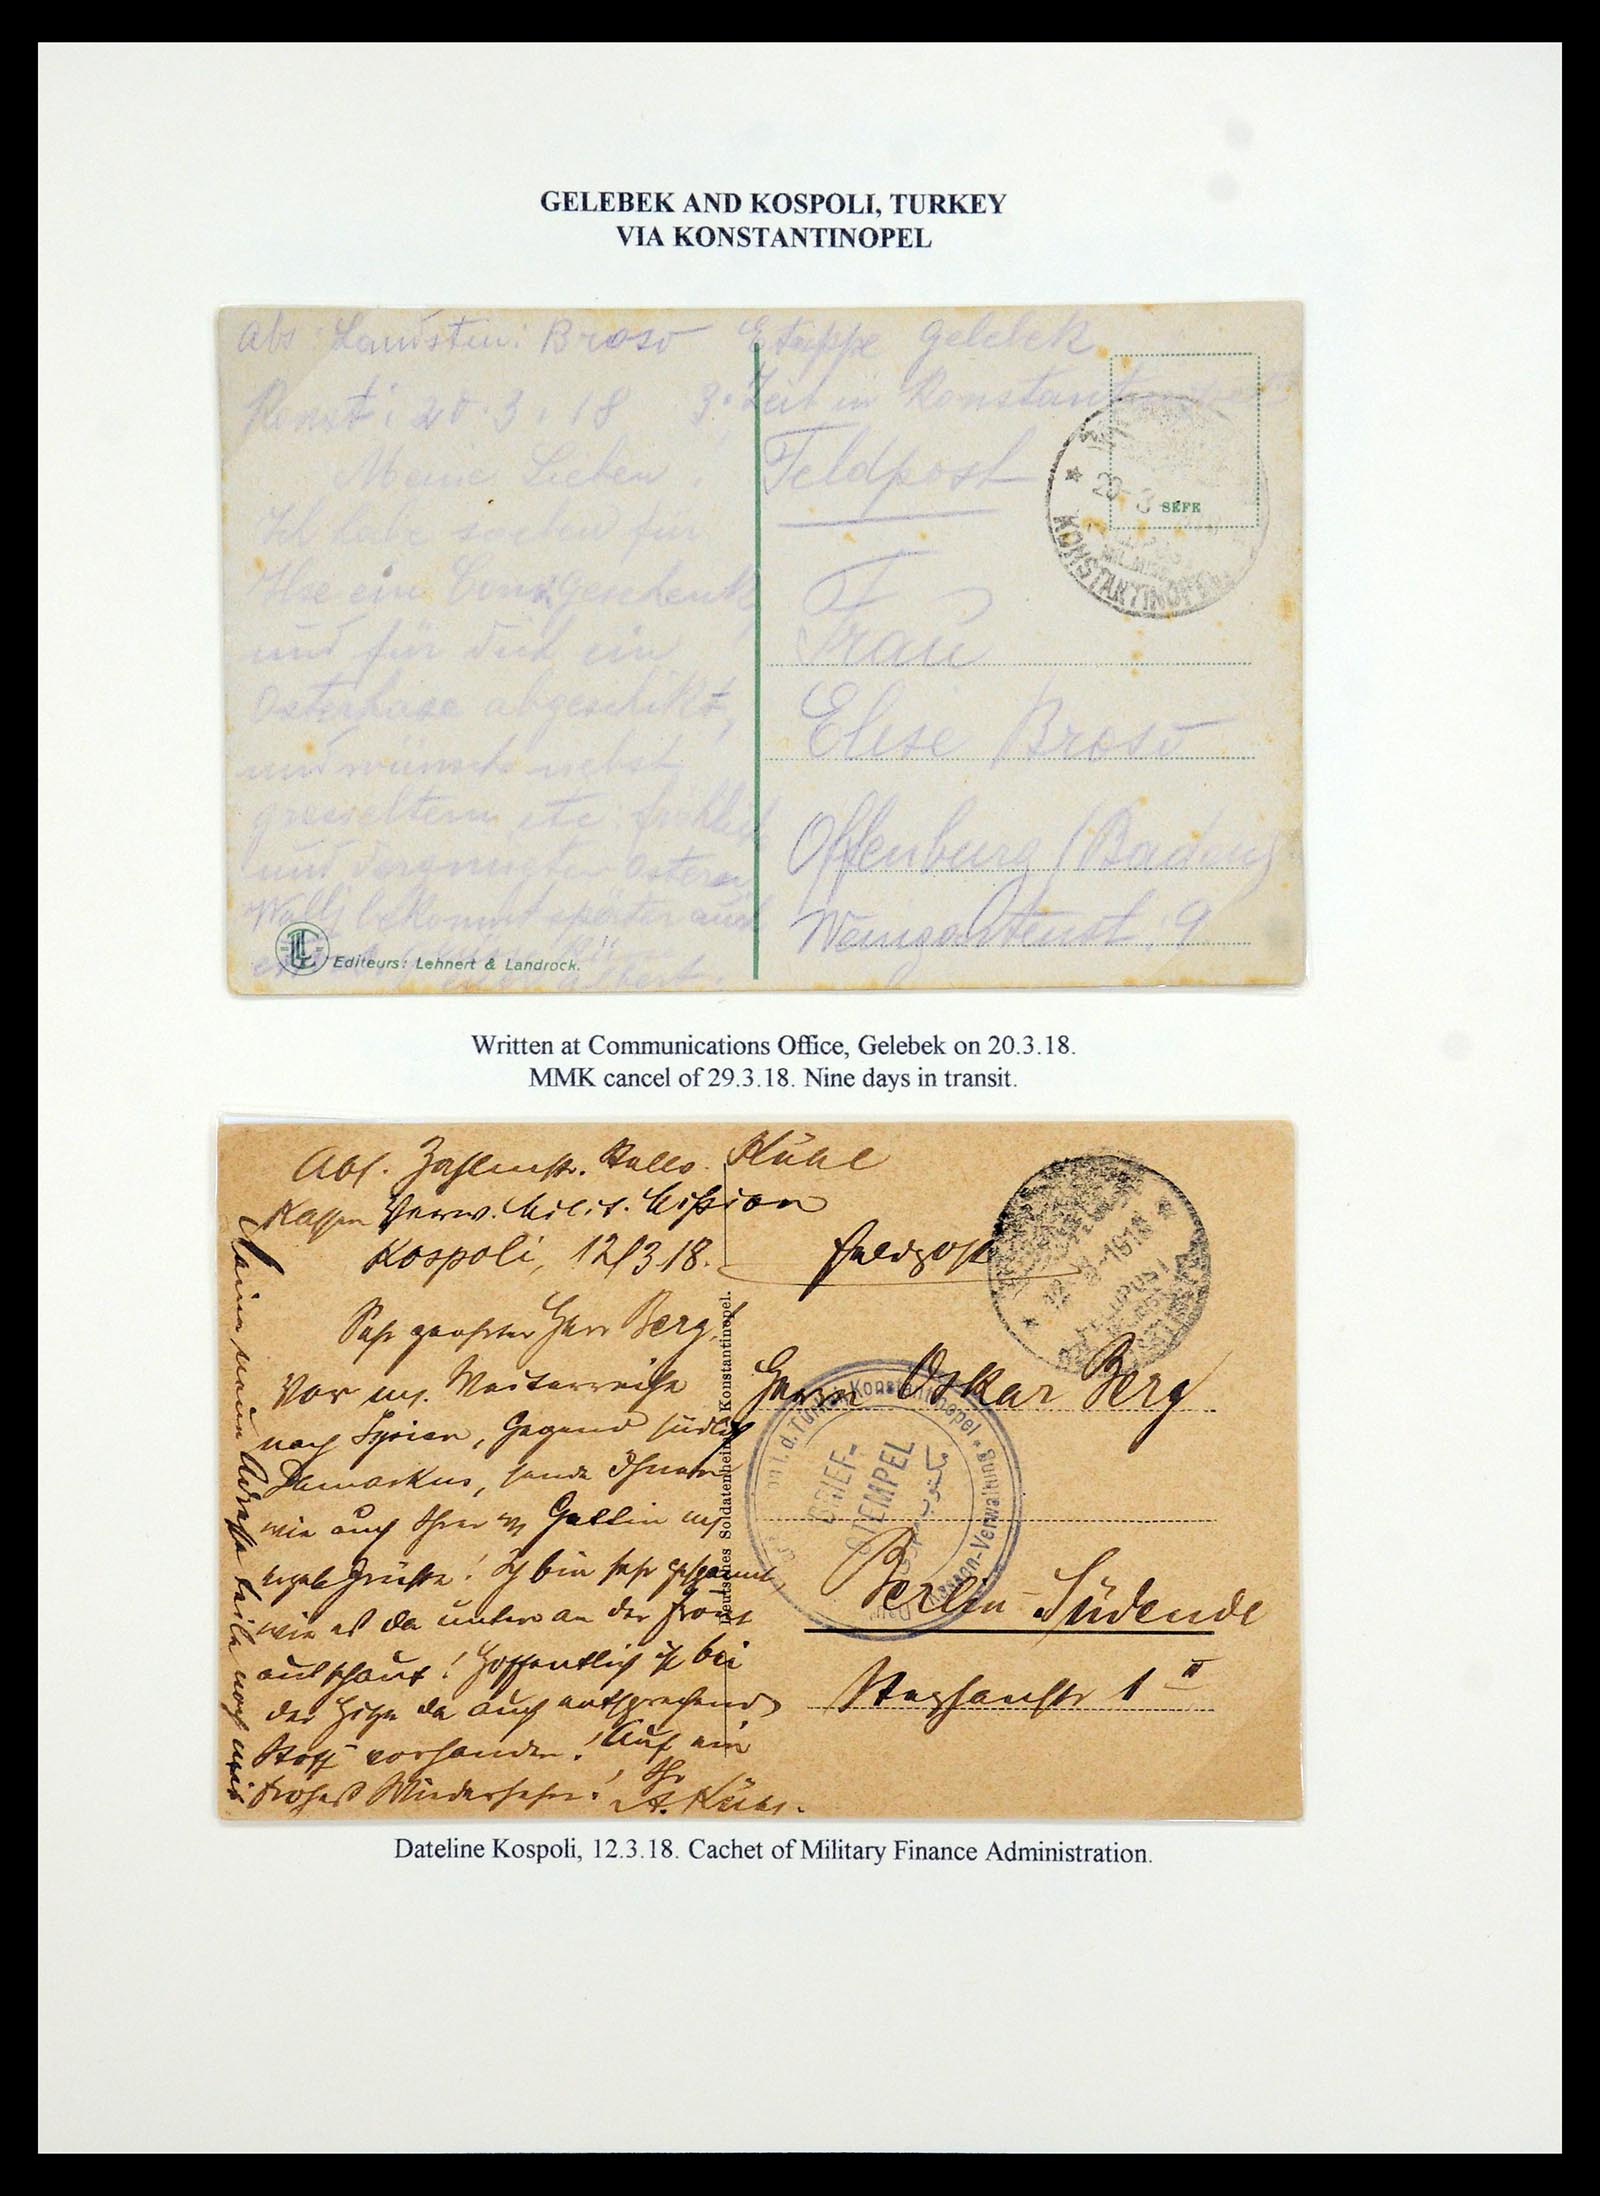 GELEBEK AND KOSPOLI, TURKEY
VIA KONSTANTINOPEL
Abs: Landstm: Etappe Gelebek
Konst: 20.3.18 z. Zeit in Konstantinopel
Meine Lieben!
Feldpost
Ich habe soeben für
Ilse ein Geschenk
und für dich ein
Osterhase abgeschikt,
und wünsche nebst
etc. fröhliche
und vergnügte Ostern
bekommt später auch
Albert.
Editeurs: Lehnert & Landrock.
SEFE
29 3
KONSTANTINOPEL
Frau
Elise
Offenburg (Baden)
Weingartenst. 9
Written at Communications Office, Gelebek on 20.3.18.
MMK cancel of 29.3.18. Nine days in transit.
Abs. Zahlmstr. Kühl
Kassen Verw. Milit. Mission
Kospoli, 12/3 18.
Feldpost
Sehr geehrter Herr Berg!
Vor m. Weiterreise
nach Syrien, Gegend südlich
Damaskus, sende Ihnen
wie auch Ihrer Gattin
ergeb Grüsse! Ich bin sehr gespannt,
wie es da unten an der Front
ausschaut! Hoffentlich ist bei
der Hitze da auch entsprechend
Stoff vorhanden! Auf ein
frohes Wiedersehen! Ihr
A. Kühl.
Meine neue Adresse teile noch mit
Deutsches Soldatenheim Konstantinopel.
12 3-1918
FELDPOST
i.d. Türkei Konstantinopel
Kassen-Verwaltung
BRIEF-
STEMPEL
Herrn Oskar Berg
Berlin-Südende
Stephanstr 1 II
Dateline Kospoli, 12.3.18. Cachet of Military Finance Administration.